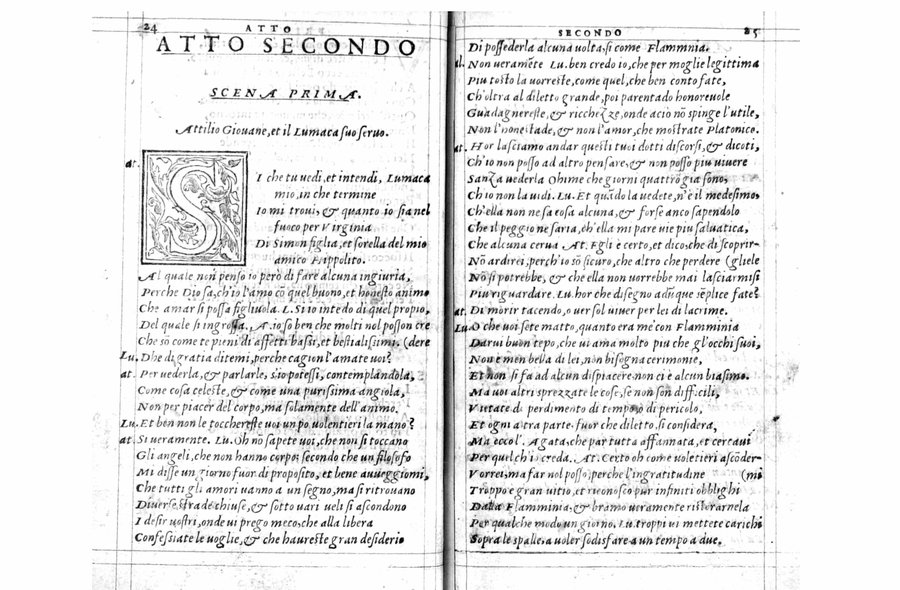 24 ATTO
ATTO SECONDO
SCENA PRIMA.
Attilio Giouane, et il Lumaca suo seruo.
at. SI che tu uedi, et intendi, Lumaca
mio, in che termine
Io mi troui, & quanto io sia nel
fuoco per Virginia
Di Simon figlia, et sorella del mio
amico Hippolito.
Al quale non penso io però di fare alcuna ingiuria,
Perche Dio sa, ch'io l'amo cō quel buono, et honesto animo
Che amar si possa figliuola. L. Si io intedo di quel propio,
Del quale si ingrossa. A. io so ben che molti nol posson cre
Che so come te pieni di affetti bassi, et bestialissimi. (dere
Lu. Dhe di gratia ditemi, perche cagion l'amate uoi?
at. Per uederla, & parlarle, s'io potessi, contemplandola,
Come cosa celeste, & come una purissima angiola,
Non per piacer del corpo, ma solamente dell'animo.
Lu. Et ben non le tocchereste uoi un po uolentieri la mano?
at. Si ueramente. Lu. Oh nō sapete uoi, che non si toccano
Gli angeli, che non hanno corpo; secondo che un filosofo
Mi disse un giorno fuor di proposito, et bene auueggiomi,
Che tutti gli amori uanno a un segno, ma si ritrouano
Diuerse strade chiuse, & sotto uari ueli si ascondono
I desir uostri, onde ui prego meco, che alla libera
Confessiate le uoglie, & che haureste gran desiderio
SECONDO 25
Di possederla alcuna uolta, si come Flamminia.
at. Non ueramēte Lu. ben credo io, che per moglie legittima
Piu tosto la uorreste, come quel, che ben conto fate,
Ch'oltra al diletto grande, poi parentado honoreuole
Guadagnereste, & ricchezze, onde acio nō spinge l'utile,
Non l'honestade, & non l'amor, che mostrate Platonico.
at. Hor lasciamo andar questi tuoi dotti discorsi, & dicoti,
Ch'io non posso ad altro pensare, & non posso piu uiuere
Sanza uederla Ohime che giorni quattro gia sono,
Ch io non la uidi. Lu. Et quādo la uedete, n'è il medesimo,
Ch'ella non ne sa cosa alcuna, & forse anco sapendolo
Che il peggio ne saria, ch'ella mi pare uie piu saluatica,
Che alcuna cerua At. Egli è certo, et dico, che di scoprir-
Nō ardirei, perch'io sō sicuro, che altro che perdere (gliele
Nō si potrebbe, & che ella non uorrebbe mai lasciarmisi
Piu riguardare. Lu. hor che disegno adūque sēplice fate?
at. Di morir tacendo, o uer sol uiuer per lei di lacrime.
Lu. O che uoi sete matto, quanto era me con Flamminia
Darui buon tempo, che ui ama molto piu che gl'occhi suoi,
Non e men bella di lei, non bisogna cerimonie,
Et non si fa ad alcun dispiacere non ci è alcun biasimo.
Ma uoi altri sprezzate le cose, se non son difficili,
Vietate di perdimento di tempo o di pericolo,
Et ogni altra parte fuor che diletto, si considera,
Ma eccol'. Agata, che par tutta affannata, et cercaui
Per quel ch'i creda. At. Certo oh come uoletieri ascōder-
Vorrei, ma far nol posso, perche l'ingratitudine (mi
Troppo e gran uitio, et riconosco pur infiniti obblighi
Dalla Flamminia, & bramo ueramente ristorarnela
Per qualche modo un giorno. Lu. troppi ui mettete carichi
Sopra le spalle, a uoler sodisfare a un tempo a due.